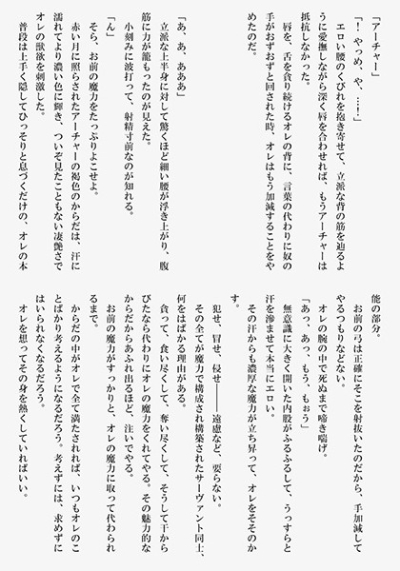 「アーチャー」
「！ やっめ、や、…っ！」
　エロい腰のくびれを抱き寄せて、立派な背の筋を辿るよ
うに愛撫しながら深く唇を合わせれば、もうアーチャーは
抵抗しなかった。
　唇を、舌を貪り続けるオレの背に、言葉の代わりに奴の
手がおずおずと回された時、オレはもう加減することをや
めたのだ。
「あ、あ、あああ」
　立派な上半身に対して驚くほど細い腰が浮き上がり、腹
筋に力が籠もったのが見えた。
　小刻みに波打って、射精寸前なのが知れる。
「ん」
　そら、お前の魔力をたっぷりよこせよ。
　赤い月に照らされたアーチャーの褐色のからだは、汗に
濡れてより濃い色に輝き、ついぞ見たこともない凄艶さで
オレの獣欲を刺激した。
　普段は上手く隠してひっそりと息づくだけの、オレの本
能の部分。
　お前の弓は正確にそこを射抜いたのだから、手加減して
やるつもりなどない。
　オレの腕の中で死ぬまで啼き喘げ。
「あっ、あっ、もう、もぉう」
　無意識に大きく開いた内股がふるふるして、うっすらと
汗を滲ませて本当にエロい。
　その汗からも濃厚な魔力が立ち昇って、オレをそそのか
す。
　犯せ、冒せ、侵せ――遠慮など、要らない。
　その全てが魔力で構成され構築されたサーヴァント同士、
何をはばかる理由がある。
　貪って、食い尽くして、奪い尽くして、そうして干から
びたなら代わりにオレの魔力をくれてやる。その魅力的な
からだからあふれ出るほど、注いでやる。
　お前の魔力がすっかりと、オレの魔力に取って代わられ
るまで。
　からだの中がオレで全て満たされれば、いつもオレのこ
とばかり考えるようになるだろう。考えずには、求めずに
はいられなくなるだろう。
　オレを想ってその身を熱くしていればいい。